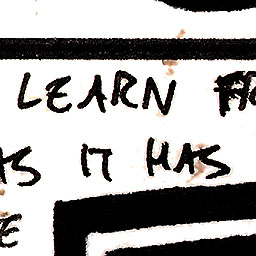 LEARN
AS IT HAS